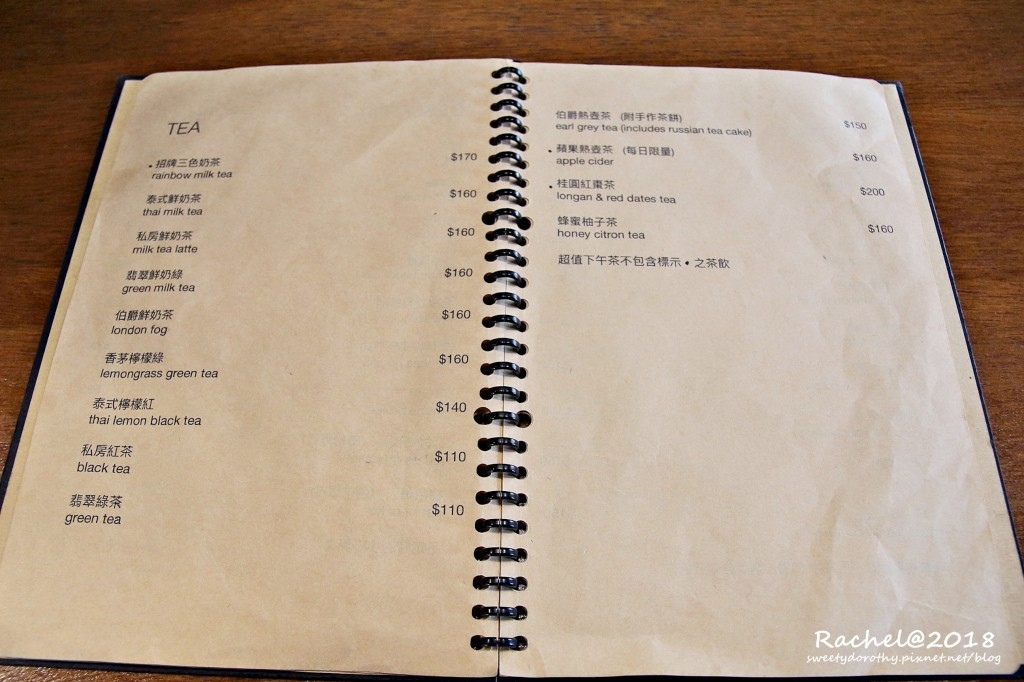 TEA
•招牌三色奶茶 $170
rainbow milk tea
泰式鮮奶茶 $160
thai milk tea
私房鮮奶茶 $160
milk tea latte
翡翠鮮奶綠 $160
green milk tea
伯爵鮮奶茶 $160
london fog
香茅檸檬綠 $160
lemongrass green tea
泰式檸檬紅 $140
thai lemon black tea
私房紅茶 $110
black tea
翡翠綠茶 $110
green tea
伯爵熱壺茶 (附手作茶餅) $150
earl grey tea (includes russian tea cake)
•蘋果熱壺茶 (每日限量) $160
apple cider
•桂圓紅棗茶 $200
longan & red dates tea
蜂蜜柚子茶 $160
honey citron tea
超值下午茶不包含標示•之茶飲
Rachel@2018
sweetydorothy.pixnet.net/blog